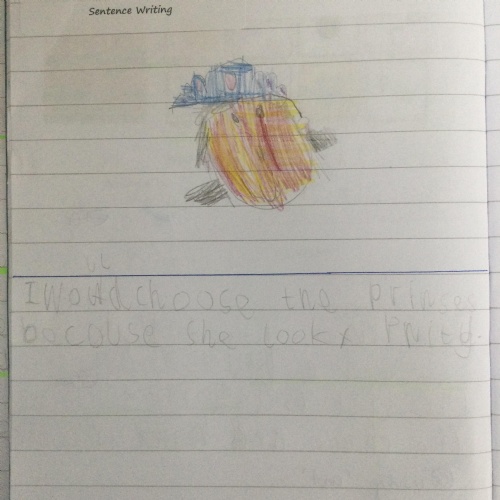 Sentence Writing
I Would choose the princes
bocause she looks Prity.